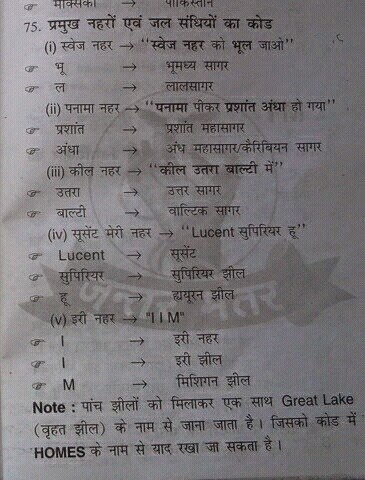 मैक्सिको → पाकिस्तान
75. प्रमुख नहरों एवं जल संधियों का कोड
(i) स्वेज नहर → "स्वेज नहर को भूल जाओ"
☞ भू → भूमध्य सागर
☞ ल → लालसागर
(ii) पनामा नहर → "पनामा पीकर प्रशांत अंधा हो गया"
☞ प्रशांत → प्रशांत महासागर
☞ अंधा → अंध महासागर/कैरिबियन सागर
(iii) कील नहर → "कील उतरा बाल्टी में"
☞ उतरा → उत्तर सागर
☞ बाल्टी → वाल्टिक सागर
(iv) सूसेंट मेरी नहर → "Lucent सुपिरियर हू"
☞ Lucent → सूसेंट
☞ सुपिरियर → सुपिरियर झील
☞ हू → ह्ययूरन झील
(v) इरी नहर → "I I M"
☞ I → इरी नहर
☞ I → इरी झील
☞ M → मिशिगन झील
Note : पांच झीलों को मिलाकर एक साथ Great Lake
(वृहत झील) के नाम से जाना जाता है। जिसको कोड में
HOMES के नाम से याद रखा जा सकता है।